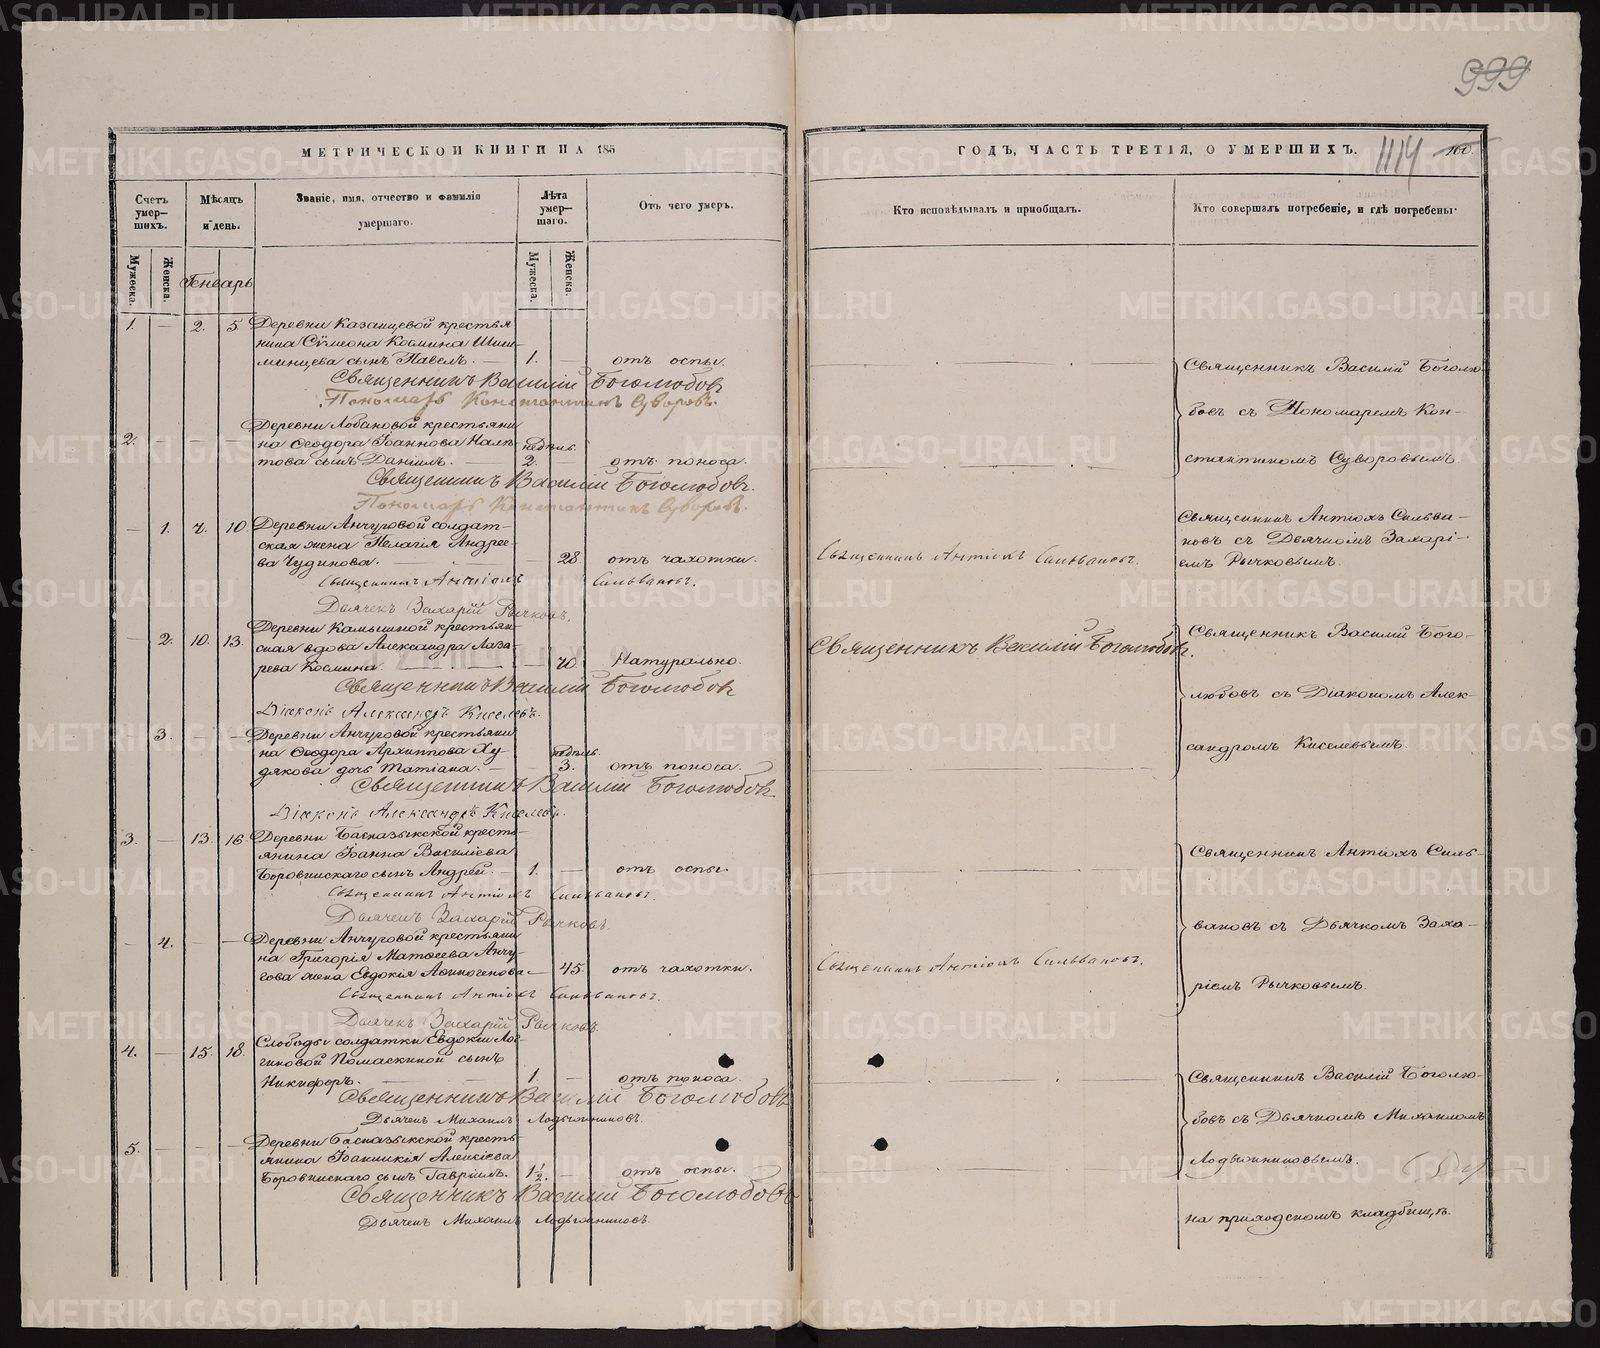 999
МЕТРИЧЕСКОЙ КНИГИ НА 185
ГОДЪ, ЧАСТЬ ТРЕТІЯ, О УМЕРШИХЪ.
1114
160.
Счетъ умер-шихъ.
Мѣсяцъ и день.
Званіе, имя, отчество и фамилія умершаго.
Лѣта умер-шаго.
Отъ чего умеръ.
Кто исповѣдывалъ и пріобщалъ.
Кто совершалъ погребеніе, и гдѣ погребены.
Мужеска.
Женска.
Генварь
Мужеска.
Женска.
1. — 2. 5 Деревни Казанцевой крестья
нина Сѵмеона Космина Шиш-
минцева сынъ Павелъ. — 1. — отъ оспы.
Священникъ Василій Боголюбовъ
Пономарь Константинъ Суворовъ.
Священникъ Василій Боголю-
бовъ съ Пономаремъ Кон-
стантиномъ Суворовымъ.
2. — — — Деревни Лобановой крестьяни
на Ѳеодора Іоаннова Налѣ-
това сынъ Даніилъ. — недѣль 2. отъ поноса.
Священникъ Василій Боголюбовъ.
Пономарь Константинъ Суворовъ.
— 1. 7. 10. Деревни Анчуговой солдат-
ская жена Пелагія Андрее-
ва Чудинова. — 28 отъ чахотки.
Священникъ Антіохъ Сильвановъ.
Дьячекъ Захарій Рычковъ.
Священникъ Антіохъ Сильвановъ.
Священникъ Антіохъ Сильва-
новъ съ Дьячкомъ Захарі-
емъ Рычковымъ.
— 2. 10. 13. Деревни Камышной крестьян-
ская вдова Александра Лаза-
рева Космина. — 70 Натурально.
Священникъ Василій Боголюбовъ
Діаконъ Александръ Киселевъ.
Священникъ Василій Боголюбовъ.
Священникъ Василій Бого-
любовъ съ Діакономъ Алек-
сандромъ Киселевымъ.
— 3. — — Деревни Анчуговой крестьяни
на Ѳеодора Архиппова Ху-
дякова дочь Татіана. — недѣль 3. отъ поноса.
Священникъ Василій Боголюбовъ
Діаконъ Александръ Киселевъ.
3. — 13. 16. Деревни Басказыкской кресть-
янина Іоанна Василіева
Боровинскаго сынъ Андрей. — 1. — отъ оспы.
Священникъ Антіохъ Сильвановъ.
Дьячекъ Захарій Рычковъ.
Священникъ Антіохъ Силь-
вановъ съ Дьячкомъ Заха-
ріемъ Рычковымъ.
— 4. — — Деревни Анчуговой крестьяни
на Григорія Матѳеева Анчу-
гова жена Евдокія Аѳиногенова — 45. отъ чахотки.
Священникъ Антіохъ Сильвановъ.
Дьячекъ Захарій Рычковъ.
Священникъ Антіохъ Сильвановъ.
4. — 15. 18. Слободы солдатки Евдокіи Лог-
гиновой Помаскиной сынъ
Никифоръ. — 1. — отъ поноса.
Священникъ Василій Боголюбовъ
Дьячекъ Михаилъ Лодыжниковъ.
Священникъ Василій Боголю-
бовъ съ Дьячкомъ Михаиломъ
Лодыжниковымъ.
5. — — — Деревни Басказыкской кресть-
янина Іоанникія Алексіева
Боровинскаго сынъ Гавріилъ. 1 1/2. — отъ оспы.
Священникъ Василій Боголюбовъ
Дьячекъ Михаилъ Лодыжниковъ.
на приходскомъ кладбищѣ.
METRIKI.GASO-URAL.RU